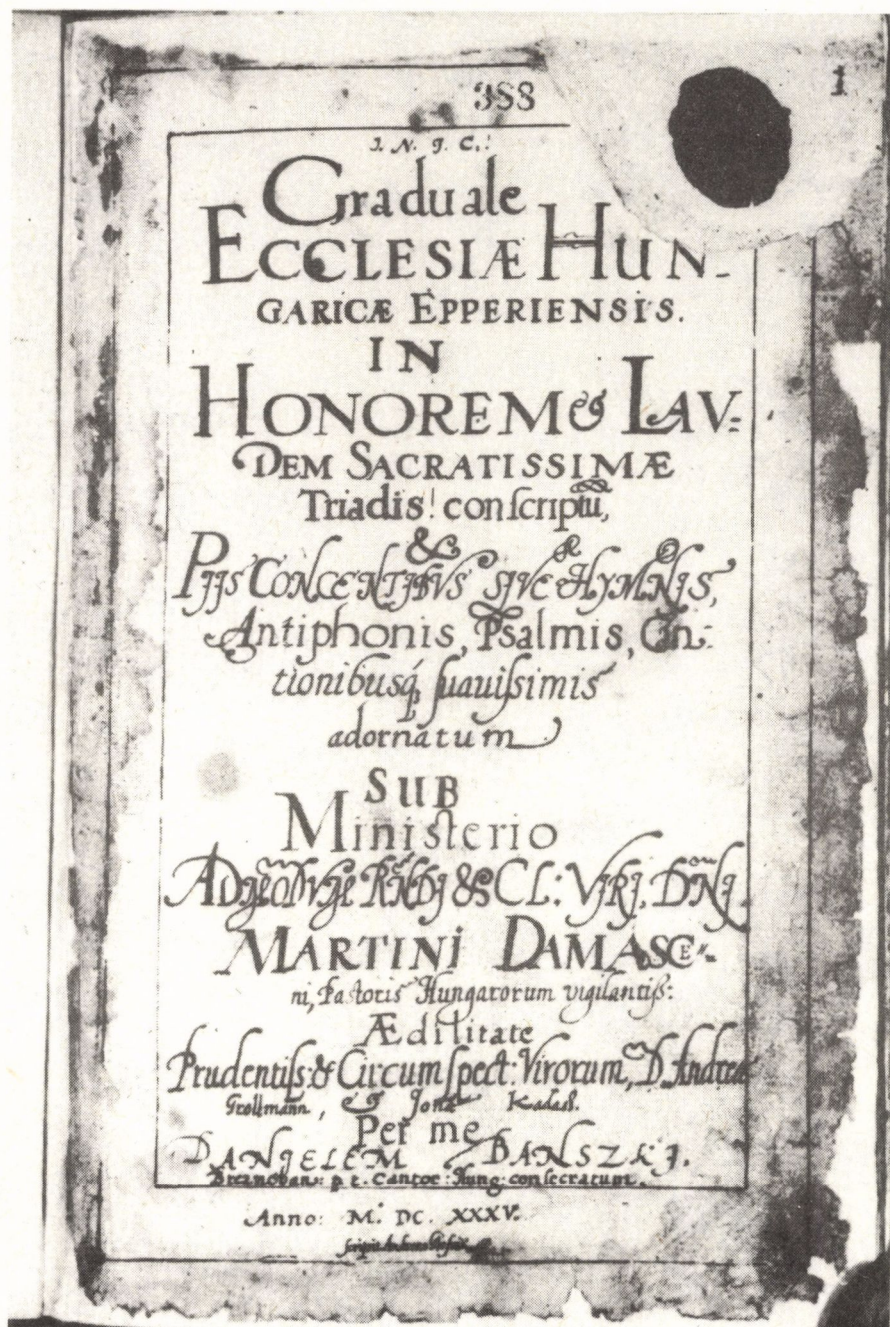 388
1
J. N. J. C.
Graduale
ECCLESIÆ HUN-
GARICÆ EPPERIENSIS.
IN
HONOREM & LAV-
DEM SACRATISSIMÆ
Triadis! conscriptū,
&
PIJS CONCENTIBVS SIVE HYMNIS,
Antiphonis, Psalmis, Can-
tionibusq, suauissimis
adornatum
SUB
Ministerio
ADMODVM RNDJ & CL: VIRJ, DNJ
MARTINI DAMASCE-
ni, Pastoris Hungarorum vigilantiss:
Ædilitate
Prudentiss: & Circumspect: Virorum, D. Andreæ
Grollmann, & Jonæ
Per me
DANIELEM BANSZKI.
Breznobans: p. t. Cantor: Hung: consecratum.
Anno: M. DC. XXXV.